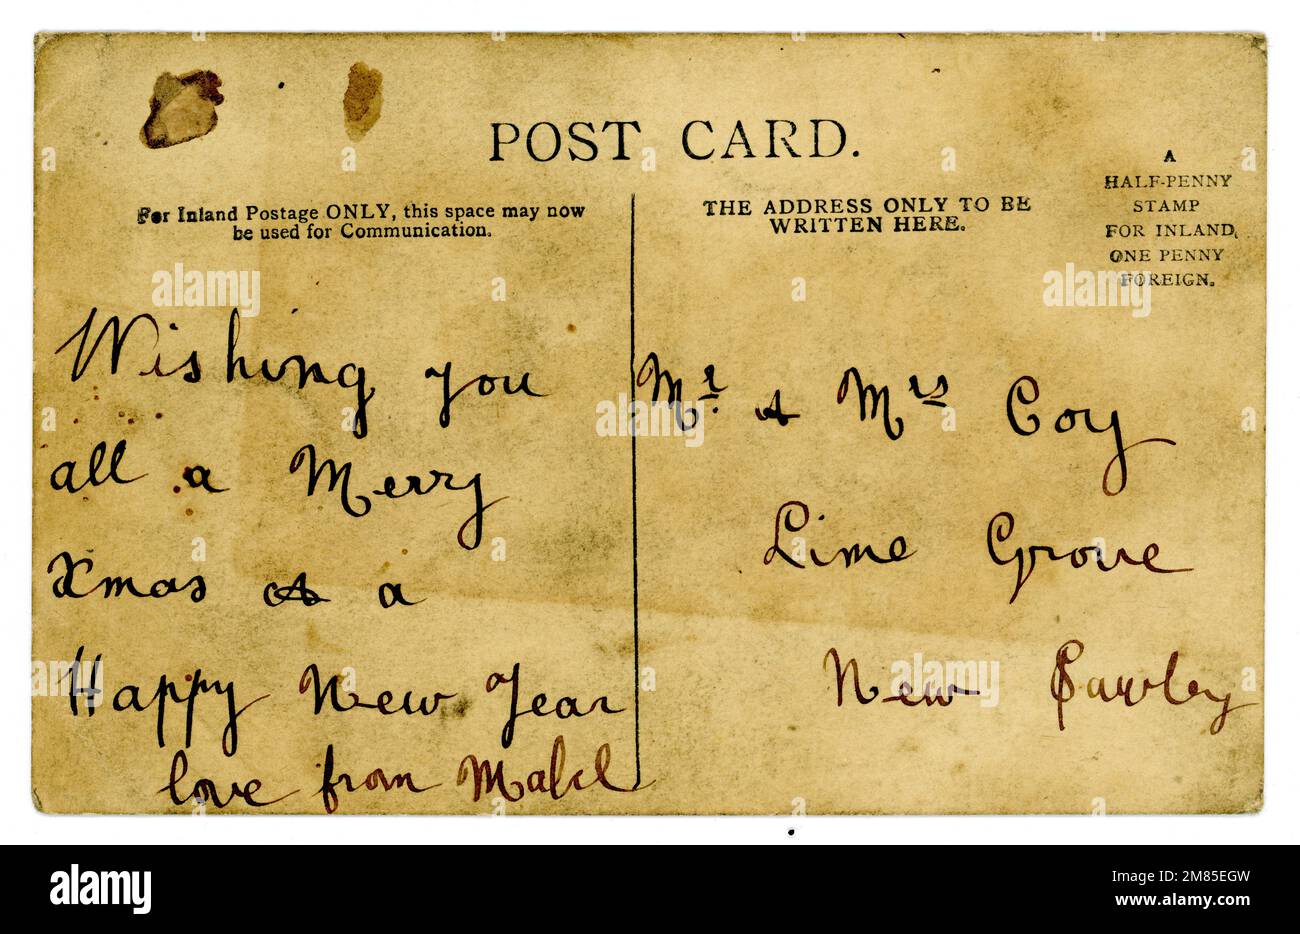 POST CARD.
For Inland Postage ONLY, this space may now
be used for Communication.
THE ADDRESS ONLY TO BE
WRITTEN HERE.
A
HALF-PENNY
STAMP
FOR INLAND,
ONE PENNY
FOREIGN.
Wishing you
all a Merry
Xmas & a
Happy New Year
love from Mabel
Mr. & Mrs Coy
Lime Grove
New Sawley
alamy
Image ID: 2M85EGW
www.alamy.com